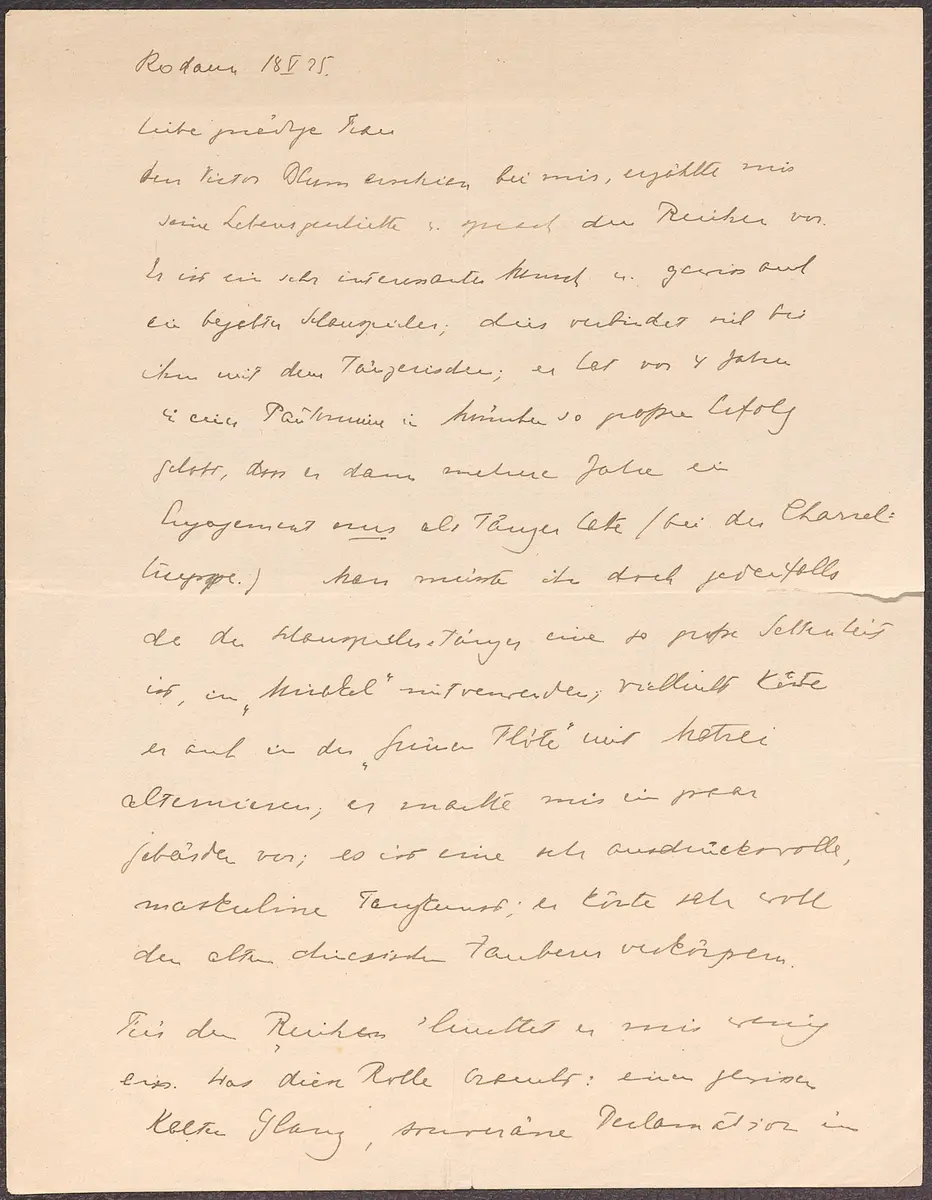 Rodaun 18 V 25.
Liebe gnädige Frau
der Victor Blum erschien bei mir, erzählte mir
seine Lebensgeschichte u. sprach den Reichen vor.
Er ist ein sehr interessanter Mensch u. gewiss auch
ein begabter Schauspieler; dies verbindet sich bei
ihm mit dem Tänzerischen; er hat vor 4 Jahren
in einer Pantomime in München so großen Erfolg
gehabt, dass er dann mehrere Jahre ein
Engagement nur als Tänzer hatte (bei der Charrel=
truppe.) Man müsste ihn doch jedenfalls
da der Schauspieler-Tänzer eine so große Seltenheit
ist, im „Mirakel" mitverwenden; vielleicht könte
er auch in der „Grünen Flöte" mit Matrei
alternieren; er machte mir ein paar
Gebärden vor; es ist eine sehr ausdrucksvolle,
maskuline Tanzkunst; er könte sehr wohl
den alten chinesischen Zauberer verkörpern.
Für den „Reichen" leuchtet er mir wenig
ein. Was diese Rolle braucht: einen gewissen
kalten Glanz, souveräne Declamation im